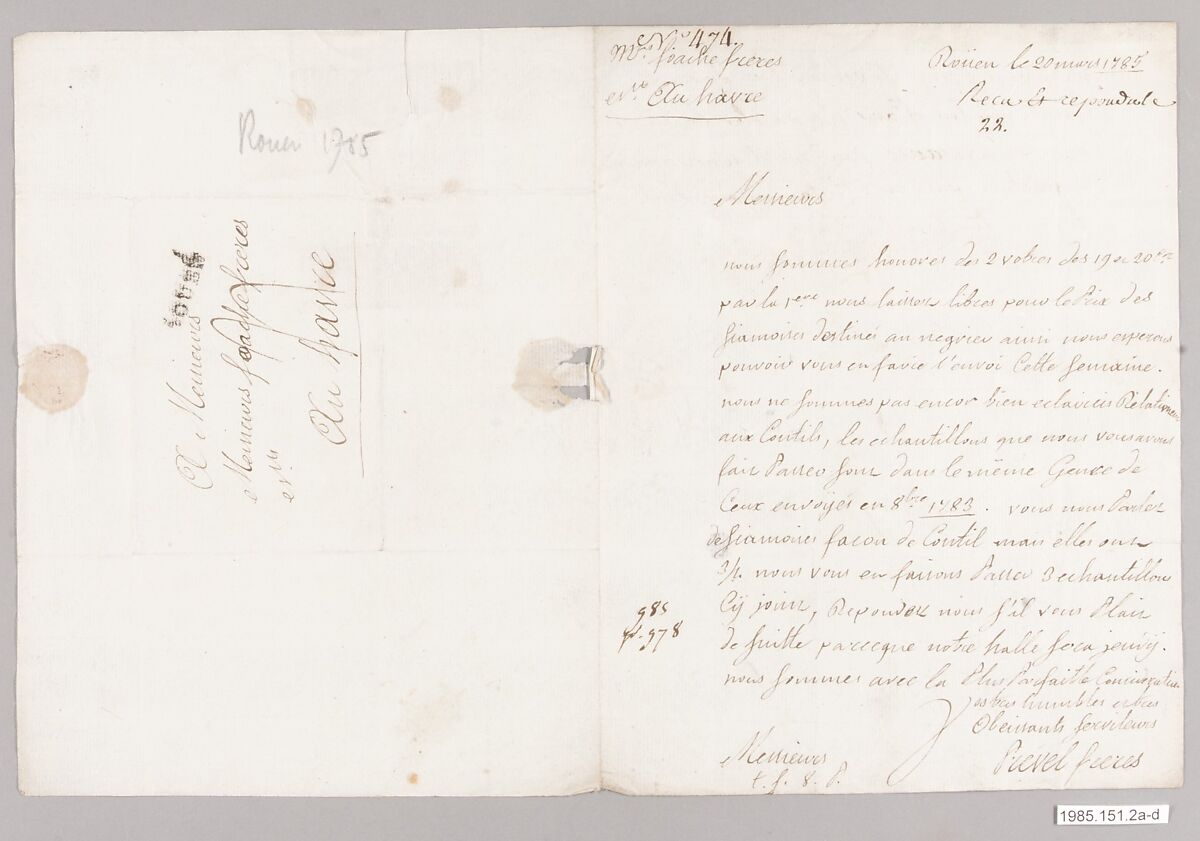 Rouen 1785
A Messieurs
Messieurs foache freres
Au havre
No 474.
Mrs foache freres
Au havre
Roüen le 20 mars 1785
Recu et repondu le
22.
Messieurs
nous sommes honorés des 2 votres des 19 et 20
par la 1ere nous laissez libres pour le Prix des
siamoises destinés au negrier ainsi nous esperons
pouvoir vous en faire l'envoi Cette semaine.
nous ne sommes pas encor bien eclaircis Relativement
aux Coutils, les echantillons que nous vous avons
fait Passer sont dans le même Genre de
Ceux envoyés en 8bre 1783. vous nous Parlez
de siamoises façon de Coutil mais elles ont
3/4. nous vous en faisons Passer 3 echantillons
Cÿ joint, Repondez nous s'il vous Plait
de suitte parceque notre halle sera jeudÿ.
nous sommes avec la Plus Parfaitte Consideration
vos tres humbles et tres
Obeissants serviteurs
Prevel freres
Messieurs
985
978
1985.151.2a-d